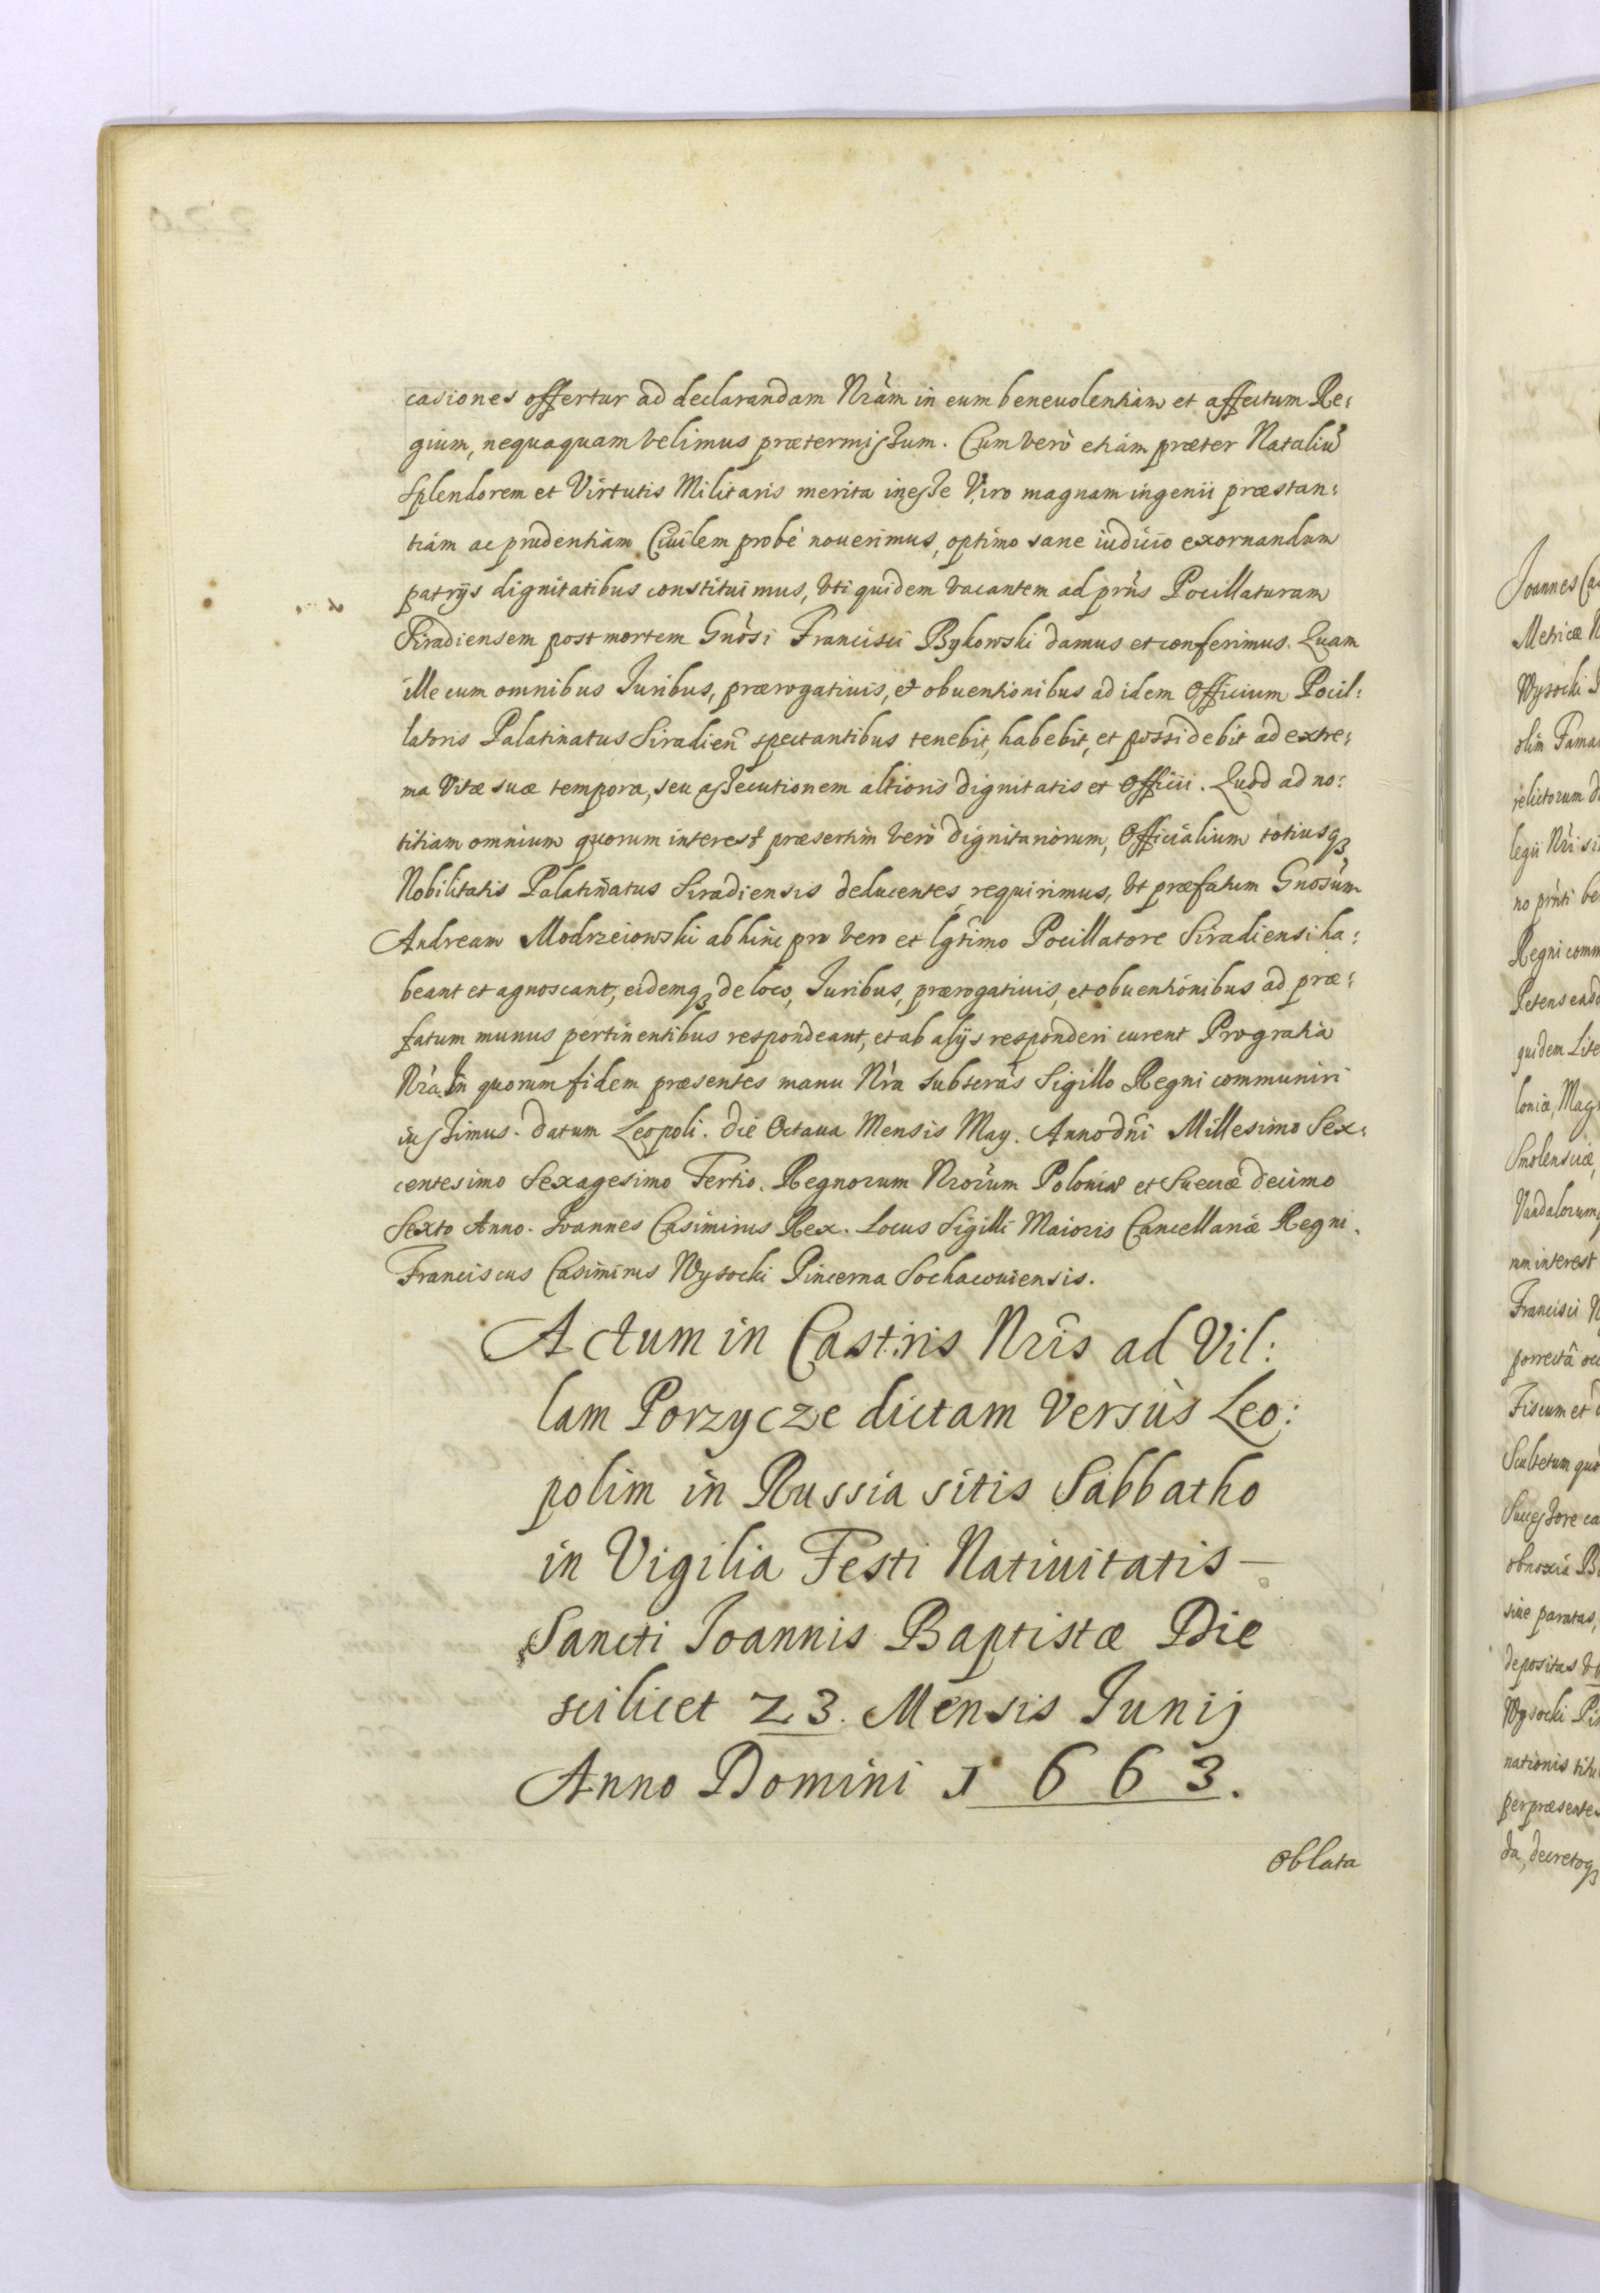 casiones offertur ad declarandam Nrãm in eum beneuolentiam et affectum Re:
gium, nequaquam velimus prætermissum. Cum verò etiam præter Nataliũ
Splendorem et Virtutis Militaris merita inesse Viro magnam ingenii præstan:
tiam ac prudentiam Ciuilem probè nouerimus, optimo sane iudicio exornandum
patrijs dignitatibus constituimus, vti quidem vacantem ad prñs Pocillaturam
Siradiensem post mortem Gnõsi Francisci Bykowski damus et conferimus. Quam
ille cum omnibus Iuribus, prærogatiuis, et obuentionibus ad idem Officium Pocil:
latoris Palatinatus Siradieñ spectantibus tenebit, habebit, et possidebit ad extre:
ma Vitæ suæ tempora, seu assecutionem altioris dignitatis et Officii. Quod ad no:
titiam omnium quorum interest præsertim verò dignitariorum, Officialium totiusqꝫ
Nobilitatis Palatinatus Siradiensis deducentes requirimus, vt præfatum Gnosũm
Andream Modrzeiowski abhinc pro vero et lgt̃imo Pocillatore Siradiensi ha:
beant et agnoscant, eidemqꝫ de loco, Iuribus, prærogatiuis, et obuentionibus ad præ:
fatum munus pertinentibus respondeant, et ab alijs responderi curent Pro gratia
Nrã. In quorum fidem præsentes manu Nrã subscrãs Sigillo Regni communiri
iussimus. datum Leopoli. Die Octaua Mensis May. Anno dñi Millesimo Sex:
centesimo Sexagesimo Tertio. Regnorum Nrorũm Poloniæ et Sueciæ decimo
Sexto Anno. Ioannes Casimirus Rex. Locus Sigilli Maioris Cancellariæ Regni.
Franciscus Casimirus Wysocki Pincerna Sochacouiensis.
Actum in Castris Nrĩs ad Vil:
lam Porzycze dictam versùs Leo:
polim in Russia sitis Sabbatho
in Vigilia Festi Natiuitatis –
Sancti Ioannis Baptistæ Die
scilicet 23. Mensis Iunij
Anno Domini 1663.
Oblata
Joannes
Metricæ
Wysocki
olim
relictorum
legii Nrĩ
no prñti
Regni
Petens
quidem
loniæ,
Smolensciæ,
Vandalorum
interest
Francisci
porrectâ
Fiscum et
Scultetum
Successore
obnoxia
siue paratas,
depositas
Wysocki
nationis
per præsentes
da, decretoqꝫ